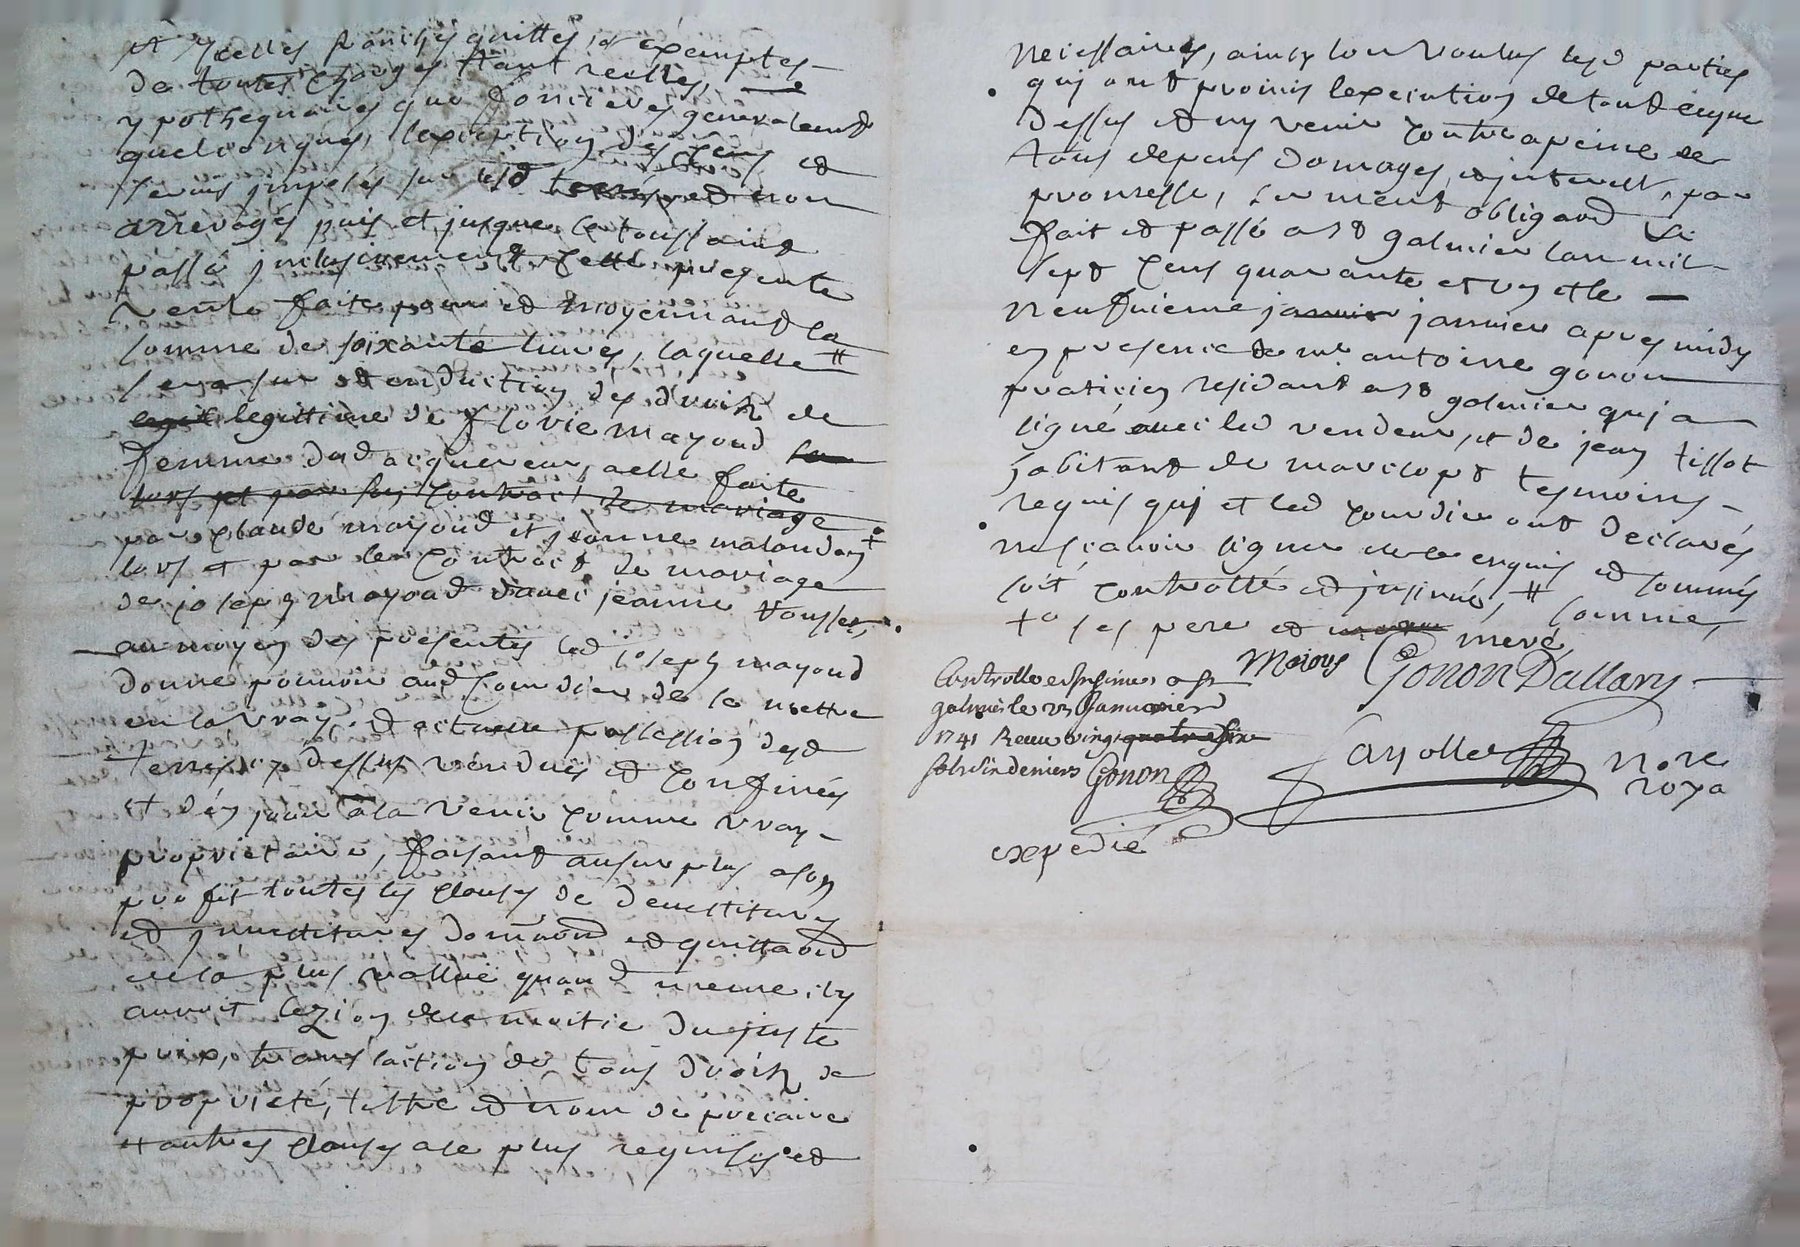 et ycelles franches quittes et exemptes
de toutes charges tant reelles,
ypothequaires que foncieres generalemt
quelconques, lexception des cens et
servis imposés sur lesd non
arreragés puis et jusques la toussaint
passé inclusivement cette presente
vente faite pour et moyennant la
somme de soixante livres, laquelle #
sera sur et enduction des droits de
legittime de flovie mayoud
femme dud acquereur, a elle faite
lors et par son contract de mariage
par claude mayoud et jeanne malandon +
lors et par le contract de mariage
de joseph mayoud d'avec jeanne
au moyen des presentes led joseph mayoud
donne pouvoir aud de se mettre
en la vraye et actuelle possession desd
dessus vendues et confinés
et den jouir a la venir comme vray
proprietaire, faisant au surplus a son
profit toutes les clauses de devestitures
et investitures et quittand
de la plus vallue quand meme il y
auroit lezion de la moitié du juste
prix, translaction de tous droits de
proprieté, tiltre et nom de precaire
et autres clauses a ce plus requises et
necessaires, ainsy lon voulus lesd parties
qui ont promis lexecution de tout ce que
dessus et ny venir contre a peine de
tous depens domages et interest, par
promesse, serment obligaond &c
fait et passé a st galmier lan mil
sept cens quarante et un et le
neufvieme janvier janvier apres midy
en presence de me antoine gonon
praticien residant a st galmier qui a
signé avec led vendeur, et de jean tissot
habitant de tesmoins
requis qui et led ont declarés
ne scavoir signer de ce enquis et sommés
soit controllé et insinué, # somme,
+ a ses pere et mere
Moious Gonon Dallary
Controlle et insinué a st
galmier le 23 Januier
1741 Receu vingt
sols six deniers Gonon
Fayolle nore
roya
expedié